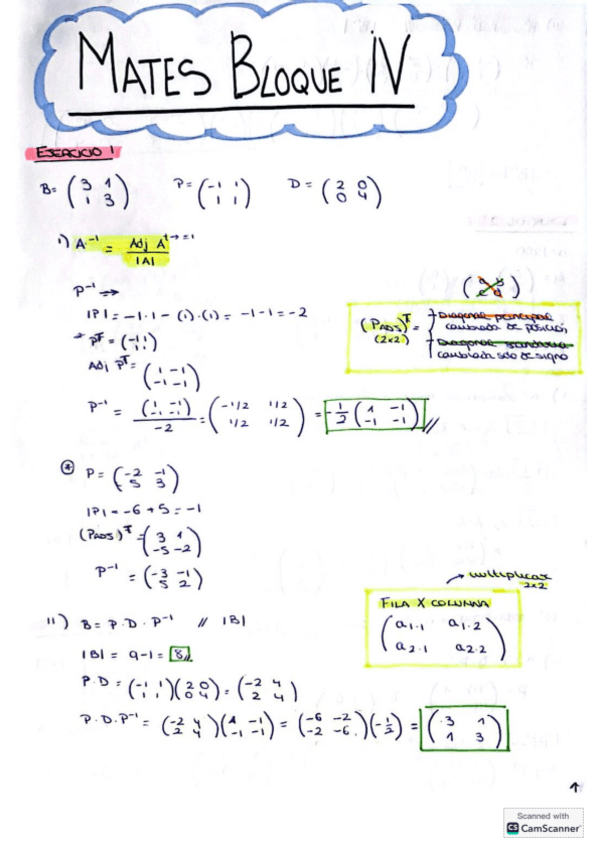 MATES BLOQUE IV
EJERCICIO 1
B= (3 1 / 1 3) P= (-1 1 / 1 1) D= (2 0 / 0 4)
1) A⁻¹ = Adj Aᵗ / |A|
P⁻¹ ⇒
|P| = -1·1 - (1)·(1) = -1-1 = -2
Pᵀ = (-1 1 / 1 1)
Adj Pᵀ = (1 -1 / -1 -1)
P⁻¹ = (1 -1 / -1 -1) / -2 = (-1/2 1/2 / 1/2 1/2) = -1/2 (1 -1 / -1 -1) //
(a b / c d)
(PADJ)ᵀ = (2x2)
→ Diagonal principal
cambiada de posición
→ Diagonal secundaria
cambiada solo de signo
* P = (-2 -1 / 5 3)
|P| = -6 + 5 = -1
(PADJ)ᵀ = (3 1 / -5 -2)
P⁻¹ = (-3 -1 / 5 2)
→ multiplicar
2x2
FILA X COLUMNA
(a1·1 a1·2 / a2·1 a2·2)
11) B = P · D · P⁻¹ // |B|
|B| = 9-1 = 8//
P·D = (-1 1 / 1 1)(2 0 / 0 4) = (-2 4 / 2 4)
P·D·P⁻¹ = (-2 4 / 2 4)(1 -1 / -1 -1) = (-6 -2 / -2 -6)(-1/2) = (3 1 / 1 3)
↑
Scanned with
CS CamScanner